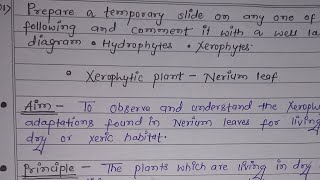 Prepare a temporary slide on any one of
following and comment it with a well la
diagram • Hydrophytes • Xerophytes
• Xerophytic plant - Nerium leaf
• Aim - To observe and understand the Xeroph
adaptations found in Nerium leaves for living
dry or xeric habitat.
• Principle - The plants which are living in dry